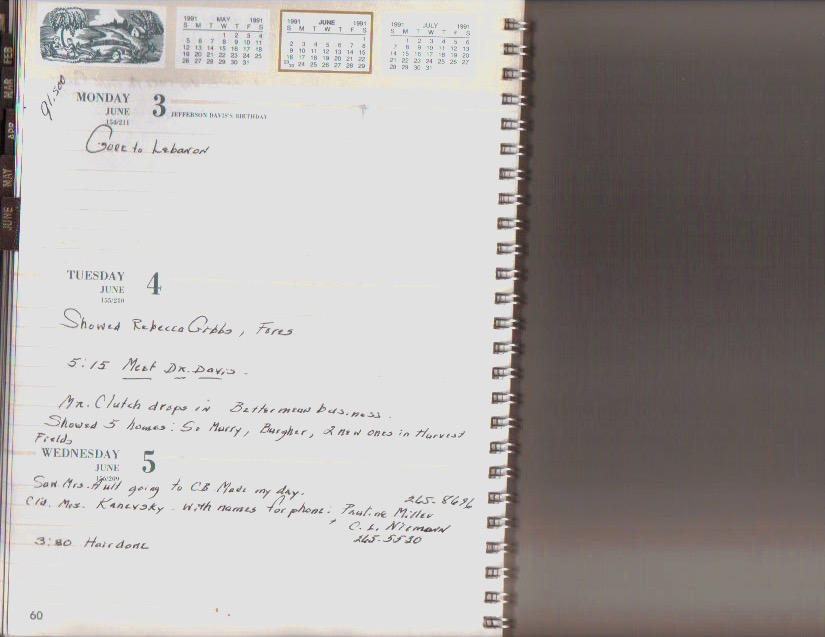 1991 MAY 1991
S M T W T F S
1 2 3 4
5 6 7 8 9 10 11
12 13 14 15 16 17 18
19 20 21 22 23 24 25
26 27 28 29 30 31
1991 JUNE 1991
S M T W T F S
1
2 3 4 5 6 7 8
9 10 11 12 13 14 15
16 17 18 19 20 21 22
23/30 24 25 26 27 28 29
1991 JULY 1991
S M T W T F S
1 2 3 4 5 6
7 8 9 10 11 12 13
14 15 16 17 18 19 20
21 22 23 24 25 26 27
28 29 30 31
FEB
MAR
APR
MAY
JUNE
91,500
MONDAY 3
JUNE JEFFERSON DAVIS'S BIRTHDAY
154/211
Gone to Lebanon
TUESDAY 4
JUNE
155/210
Showed Rebecca Gibbs, Fores
5:15 Meet Dr. Davis.
Mr. Clutch drops in Better mean business.
Showed 5 homes: So Murry, Burgher, 2 new ones in Harvest
Fields
WEDNESDAY 5
JUNE
156/209
Saw Mrs. Hull going to CB Made my day.
265-8696
Cld. Mrs. Kanevsky with names for phone: Pauline Miller
C. L. Niemann
265-5530
3:30 Hair done
60